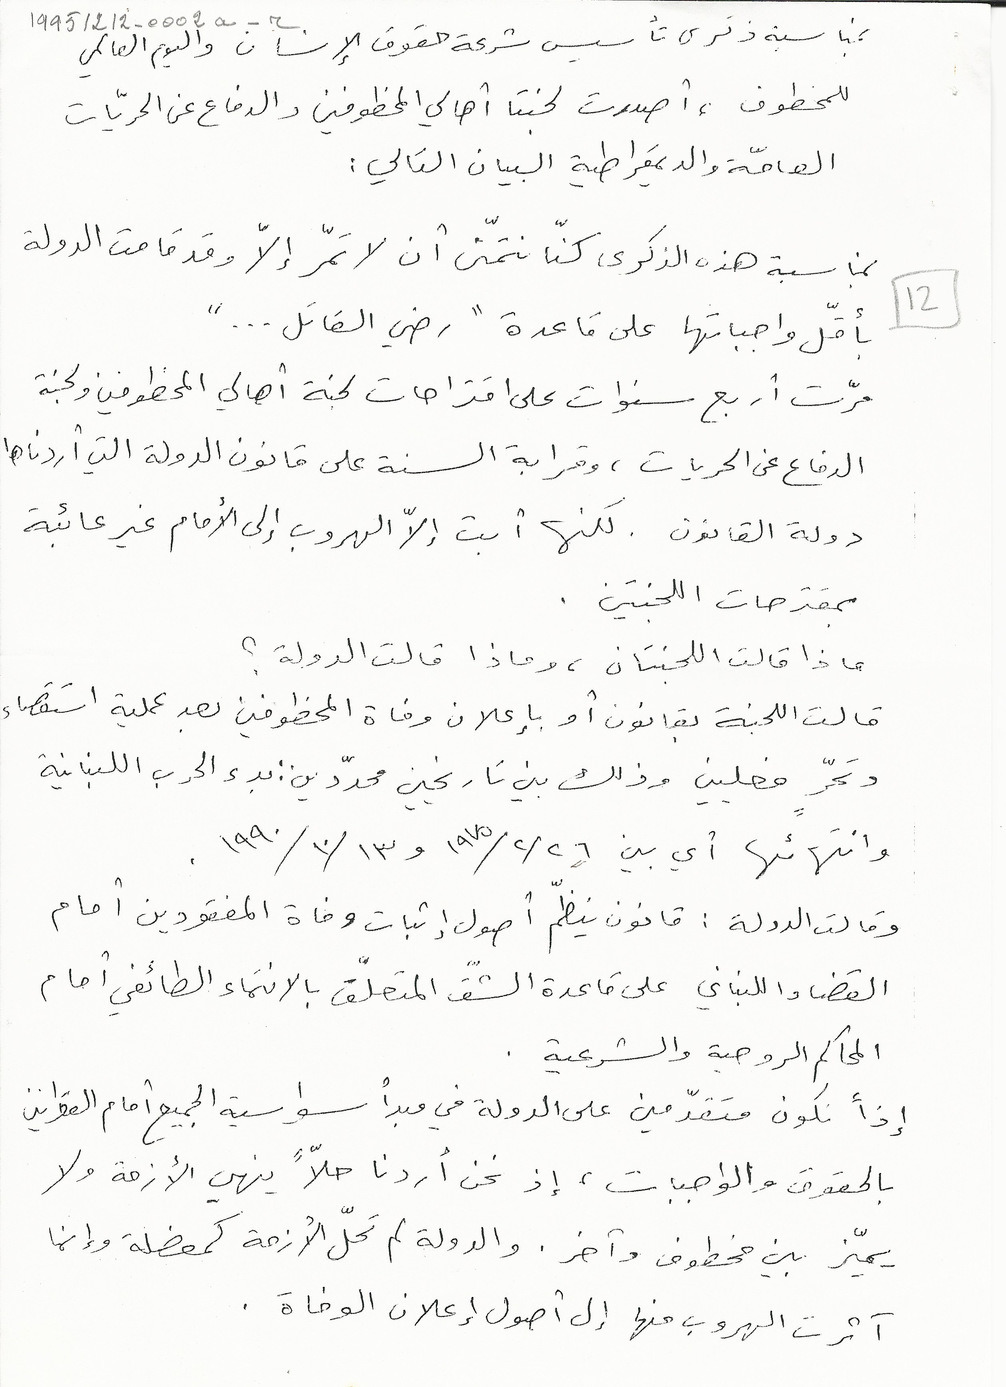 1995/12/12-0002 a-r
بمناسبة ذكرى تأسيس شرعة حقوق الإنسان واليوم العالمي
للمخطوف، أصدرت لجنتا أهالي المخطوفين والدفاع عن الحريّات
العامّة والديمقراطية البيان التالي:
بمناسبة هذه الذكرى كنّا نتمنّى أن لا تمرّ إلاّ وقد قامت الدولة
12
بأقلّ واجباتها على قاعدة "رضي القاتل ..."
مرّت أربع سنوات على اقتراحات لجنة أهالي المخطوفين ولجنة
الدفاع عن الحريات، وقرابة السنة على قانون الدولة التي أردناها
دولة القانون. لكنها أبت إلاّ الهروب إلى الأمام غير عابئة
بمقترحات اللجنتين.
ماذا قالت اللجنتان، وماذا قالت الدولة؟
قالت اللجنة بقانون أو بإعلان وفاة المخطوفين بعد عملية استقصاء
وتحرٍّ فعليين وذلك بين تاريخين محدّدين: بدء الحرب اللبنانية
وانتهائها أي بين ٢٦/٢/١٩٧٥ و ١٣/١٠/١٩٩٠.
وقالت الدولة: قانون ينظّم أصول إثبات وفاة المفقودين أمام
القضاء اللبناني على قاعدة الشقّ المتعلّق بالانتماء الطائفي أمام
المحاكم الروحية والشرعية.
إذاً نكون متقدّمين على الدولة في مبدأ سواسية الجميع أمام القوانين
بالحقوق والواجبات، إذ نحن أردنا حلاًّ ينهي الأزمة ولا
يميّز بين مخطوف وآخر. والدولة لم تحلّ الأزمة كمعضلة وإنما
آثرت الهروب منها إلى أصول إعلان الوفاة.